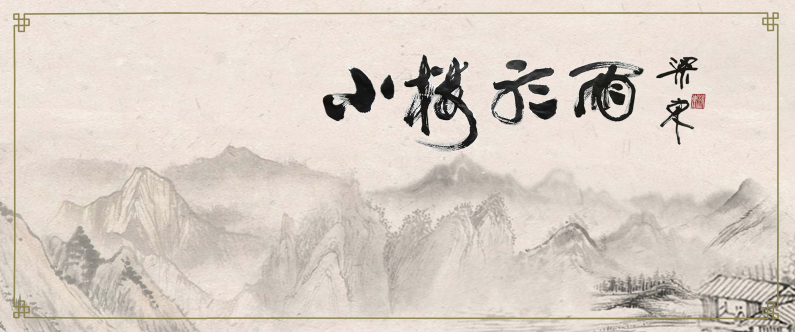 小楼听雨
梁东